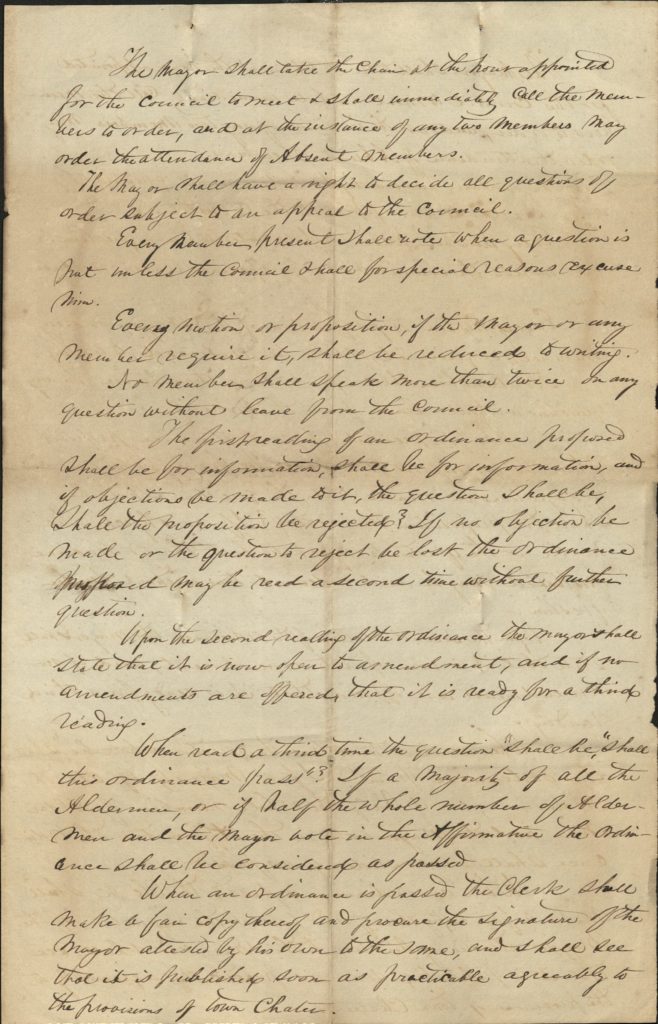 The Mayor shall take the Chair at the hour appointed
for the Council to meet & shall immediately call the Mem-
bers to order, and at the instance of any two Members May
order the attendance of Absent Members.
The Mayor shall have a right to decide all questions of
order subject to an appeal to the Council.
Every Member present shall vote when a question is
put unless the Council shall for special reasons excuse
him.
Every Motion or proposition, if the Mayor or any
Member require it, shall be reduced to writing.
No Member shall speak more than twice on any
question without leave from the Council.
The first reading of an ordinance proposed
shall be for information, shall be for information, and
if objections be made to it, the question shall be,
Shall the proposition be rejected? If no objection be
made or the question to reject be lost the ordinance
proposed may be read a second time without further
question.
Upon the second reading of the ordinance the Mayor shall
state that it is now open to amendment, and if no
amendments are offered, that it is ready for a third
reading.
When read a third time the question shall be, "shall
this ordinance pass"? If a Majority of all the
Aldermen, or if half the whole number of Alder-
men and the Mayor vote in the Affirmative the Ordin-
ance shall be considered as passed
When an ordinance is passed the Clerk shall
make a fair copy thereof and procure the signature of the
Mayor attested by his own to the same, and shall see
that it is published soon as practicable agreeably to
the provisions of town Chater.